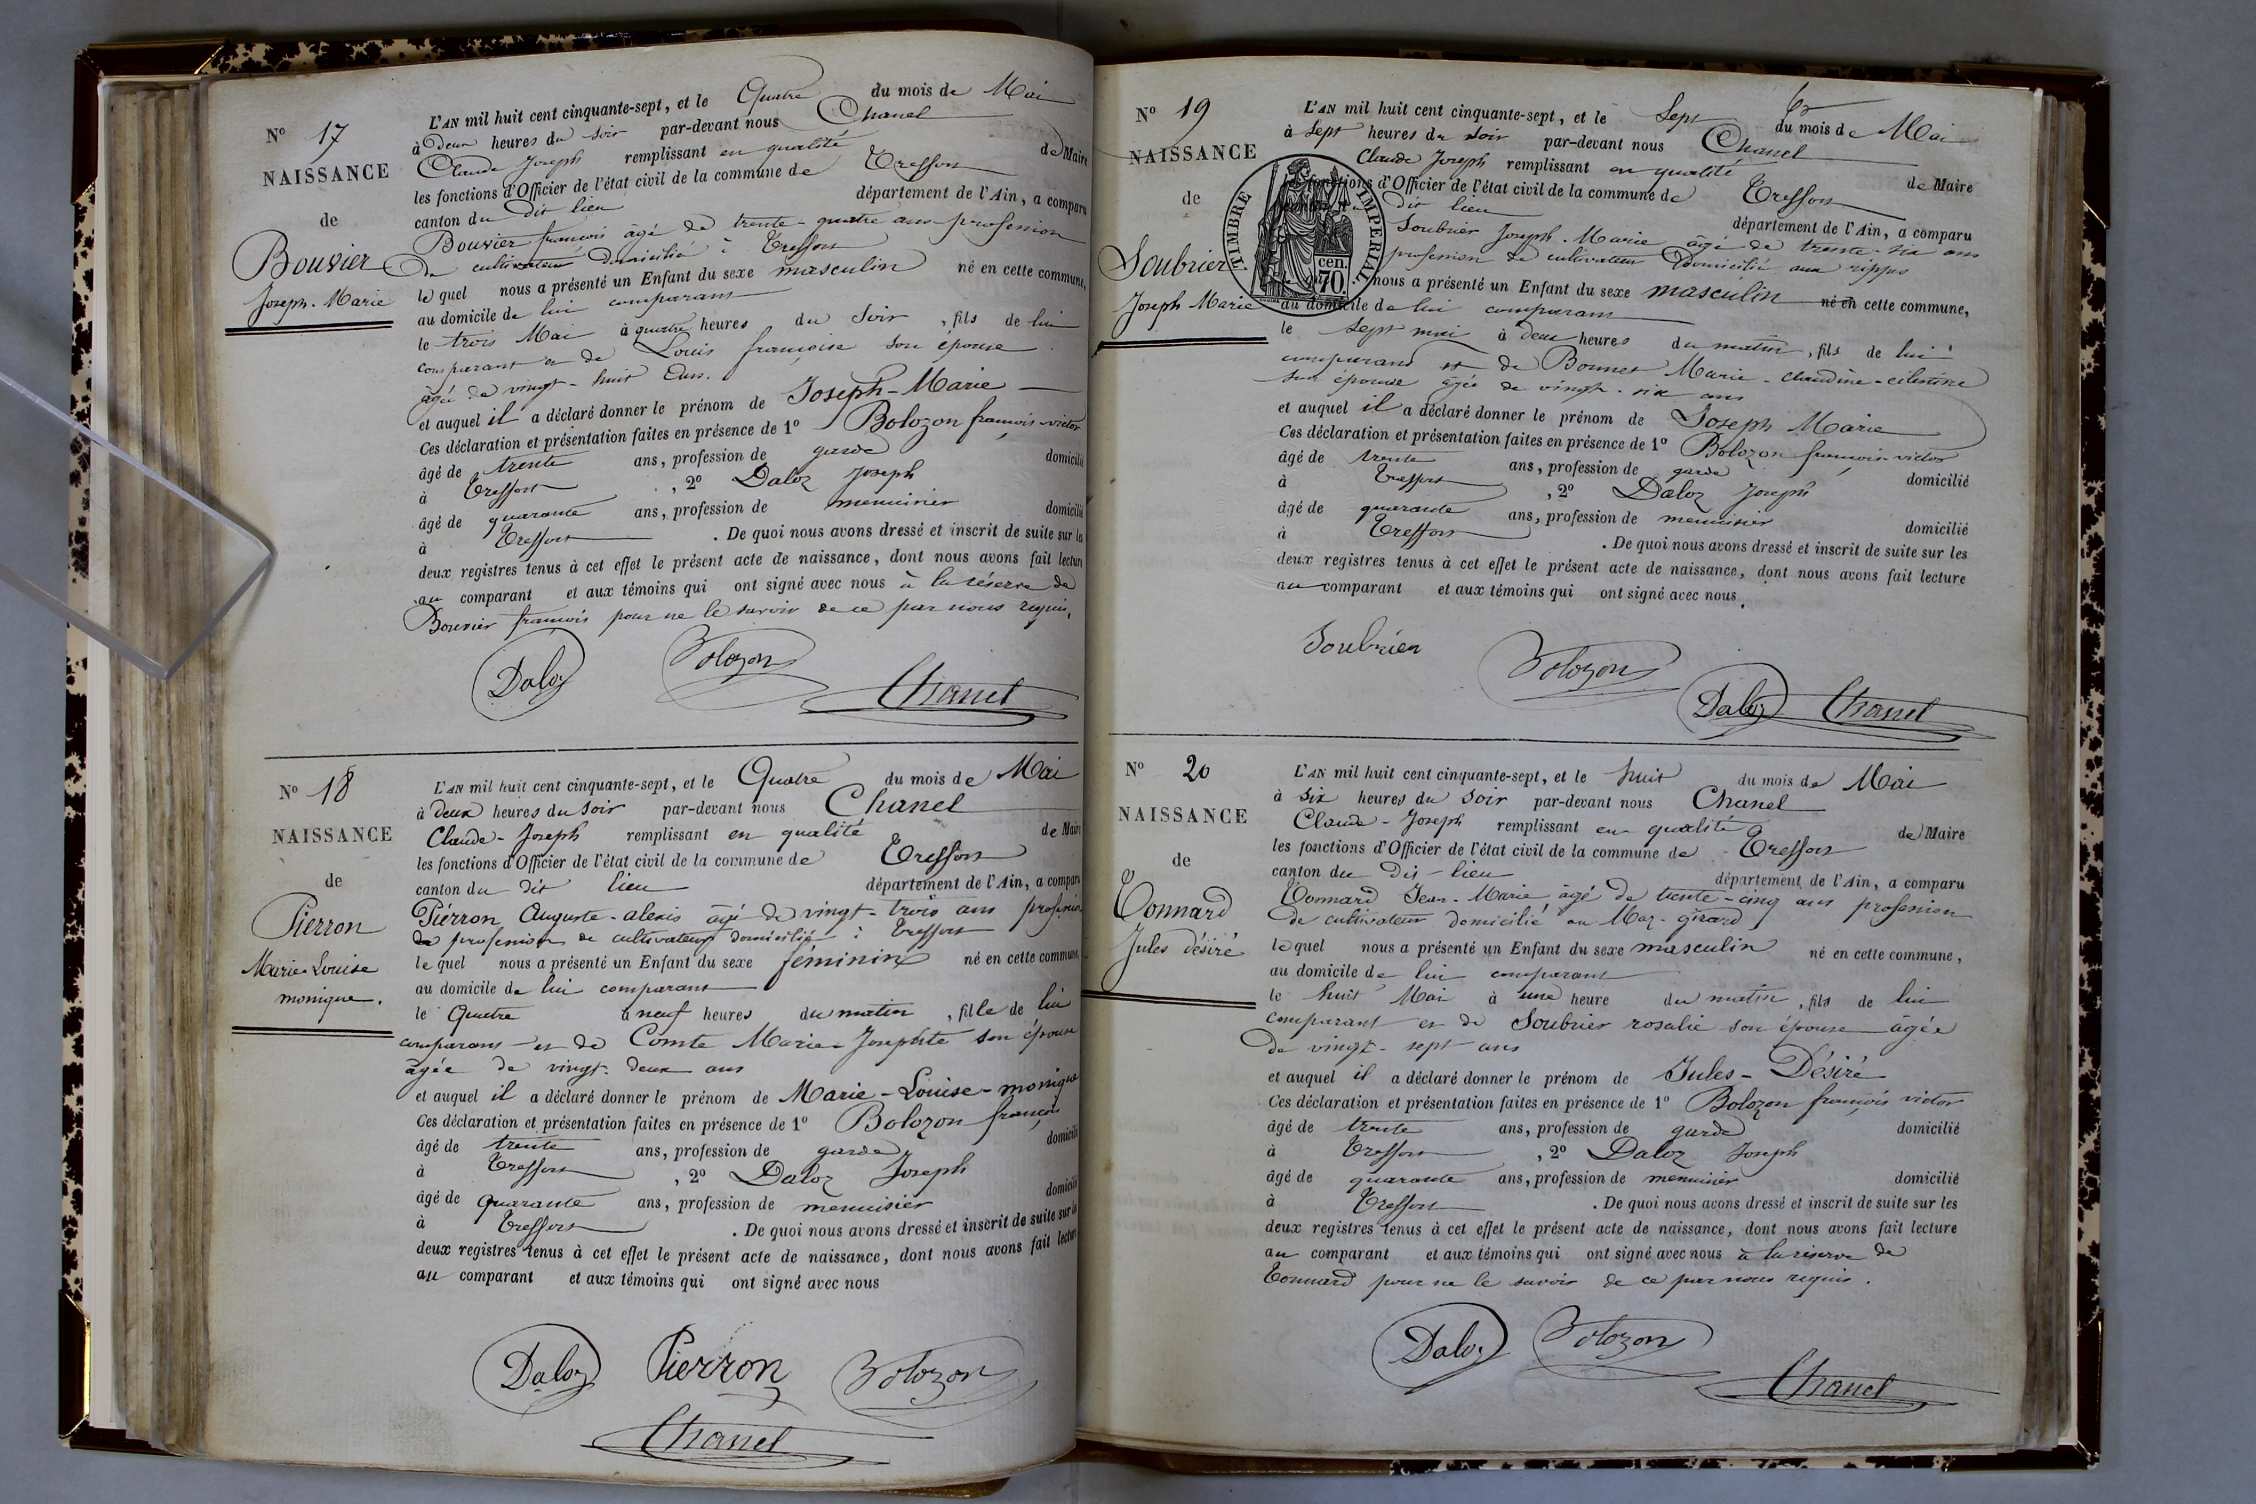 N° 17
NAISSANCE
de
Bouvier
Joseph-Marie
L'AN mil huit cent cinquante-sept, et le Quatre du mois de Mai
à Deux heures du soir par-devant nous Chanel
Claude Joseph remplissant en qualité de Maire
les fonctions d'Officier de l'état civil de la commune de Treffort
canton du dit lieu département de l'Ain, a comparu
Bouvier françois agé de trente-quatre ans profession
de cultivateur domicilié à Treffort
le quel nous a présenté un Enfant du sexe masculin né en cette commune,
au domicile de lui comparant
le trois Mai à quatre heures du Soir, fils de lui
comparant et de Louis françoise son épouse
âgé de vingt-huit ans.
et auquel il a déclaré donner le prénom de Joseph-Marie
Ces déclaration et présentation faites en présence de 1° Bolozon françois-victor
âgé de trente ans, profession de garde domicilié
à Treffort, 2° Daloz Joseph
âgé de quarante ans, profession de menuisier domicilié
à Treffort. De quoi nous avons dressé et inscrit de suite sur les
deux registres tenus à cet effet le présent acte de naissance, dont nous avons fait lecture
au comparant et aux témoins qui ont signé avec nous à la réserve de
Bouvier françois pour ne le savoir de ce par nous requis.
Daloz Bolozon
Chanel
N° 18
NAISSANCE
de
Pierron
Marie-Louise
monique.
L'AN mil huit cent cinquante-sept, et le Quatre du mois de Mai
à deux heures du soir par-devant nous Chanel
Claude-Joseph remplissant en qualité de Maire
les fonctions d'Officier de l'état civil de la commune de Treffort
canton du dit lieu département de l'Ain, a comparu
Pierron Auguste-alexis âgé de vingt-trois ans profession
de profession de cultivateur domicilié à Treffort
le quel nous a présenté un Enfant du sexe feminin né en cette commune,
au domicile de lui comparant
le Quatre à neuf heures du matin, fille de lui
comparant et de Comte Marie-Josephte son épouse
âgée de vingt-deux ans
et auquel il a déclaré donner le prénom de Marie-Louise-monique
Ces déclaration et présentation faites en présence de 1° Bolozon françois
âgé de trente ans, profession de garde domicilié
à Treffort, 2° Daloz Joseph
âgé de quarante ans, profession de menuisier domicilié
à Treffort. De quoi nous avons dressé et inscrit de suite sur les
deux registres tenus à cet effet le présent acte de naissance, dont nous avons fait lecture
au comparant et aux témoins qui ont signé avec nous
Daloz Pierron Bolozon
Chanel
N° 19
NAISSANCE
de
Soubrier
Joseph Marie
TIMBRE IMPERIAL
70 cen.
L'AN mil huit cent cinquante-sept, et le Sept du mois de Mai
à Sept heures du soir par-devant nous Chanel
Claude Joseph remplissant en qualité de Maire
les fonctions d'Officier de l'état civil de la commune de Treffort
dit lieu département de l'Ain, a comparu
Soubrier Joseph-Marie âgé de trente-six ans
profession de cultivateur domicilié aux rippes
nous a présenté un Enfant du sexe masculin né en cette commune,
au domicile de lui comparant
le Sept mai à deux heures du matin, fils de lui
comparant et de Bonnet Marie-Claudine-celestine
son épouse âgée de vingt-six ans
et auquel il a déclaré donner le prénom de Joseph Marie
Ces déclaration et présentation faites en présence de 1° Bolozon françois-victor
âgé de trente ans, profession de garde domicilié
à Treffort, 2° Daloz Joseph
âgé de quarante ans, profession de menuisier domicilié
à Treffort. De quoi nous avons dressé et inscrit de suite sur les
deux registres tenus à cet effet le présent acte de naissance, dont nous avons fait lecture
au comparant et aux témoins qui ont signé avec nous.
Soubrier Bolozon
Daloz Chanel
N° 20
NAISSANCE
de
Tonnard
Jules désiré
L'AN mil huit cent cinquante-sept, et le huit du mois de Mai
à six heures du soir par-devant nous Chanel
Claude-Joseph remplissant en qualité de Maire
les fonctions d'Officier de l'état civil de la commune de Treffort
canton du dit-lieu département de l'Ain, a comparu
Tonnard Jean-Marie, âgé de trente-cinq ans profession
de cultivateur domicilié au Maz-girard
le quel nous a présenté un Enfant du sexe masculin né en cette commune,
au domicile de lui comparant
le huit Mai à une heure du matin, fils de lui
comparant et de Soubrier rosalie son épouse âgée
de vingt-sept ans
et auquel il a déclaré donner le prénom de Jules-Désiré
Ces déclaration et présentation faites en présence de 1° Bolozon françois victor
âgé de trente ans, profession de garde domicilié
à Treffort, 2° Daloz Joseph
âgé de quarante ans, profession de menuisier domicilié
à Treffort. De quoi nous avons dressé et inscrit de suite sur les
deux registres tenus à cet effet le présent acte de naissance, dont nous avons fait lecture
au comparant et aux témoins qui ont signé avec nous à la réserve de
Tonnard pour ne le savoir de ce par nous requis.
Daloz Bolozon
Chanel